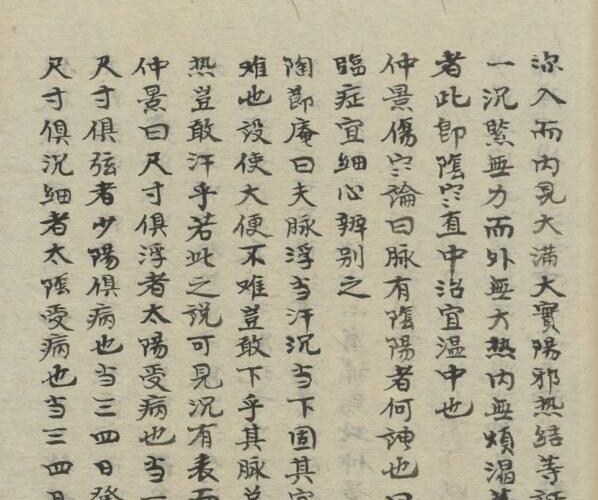 深入而内見大滿大實陽邪热結等
一沉點無力而外無大热内無煩渴
者此即陰寒直中治宜温中也
仲景傷寒論曰脉有陰陽者何謂也曰
臨症宜細心辨别之
陶節庵曰夫脉浮当汗沉当下固其宜
难也設使大便不难豈敢下乎其脉
热豈敢汗乎若此之説可見沉有表而
仲景曰尺寸俱浮者太陽受病也当一
尺寸俱弦者少陽俱病也当三四日發
尺寸俱沉細者太陰受病也当三四日